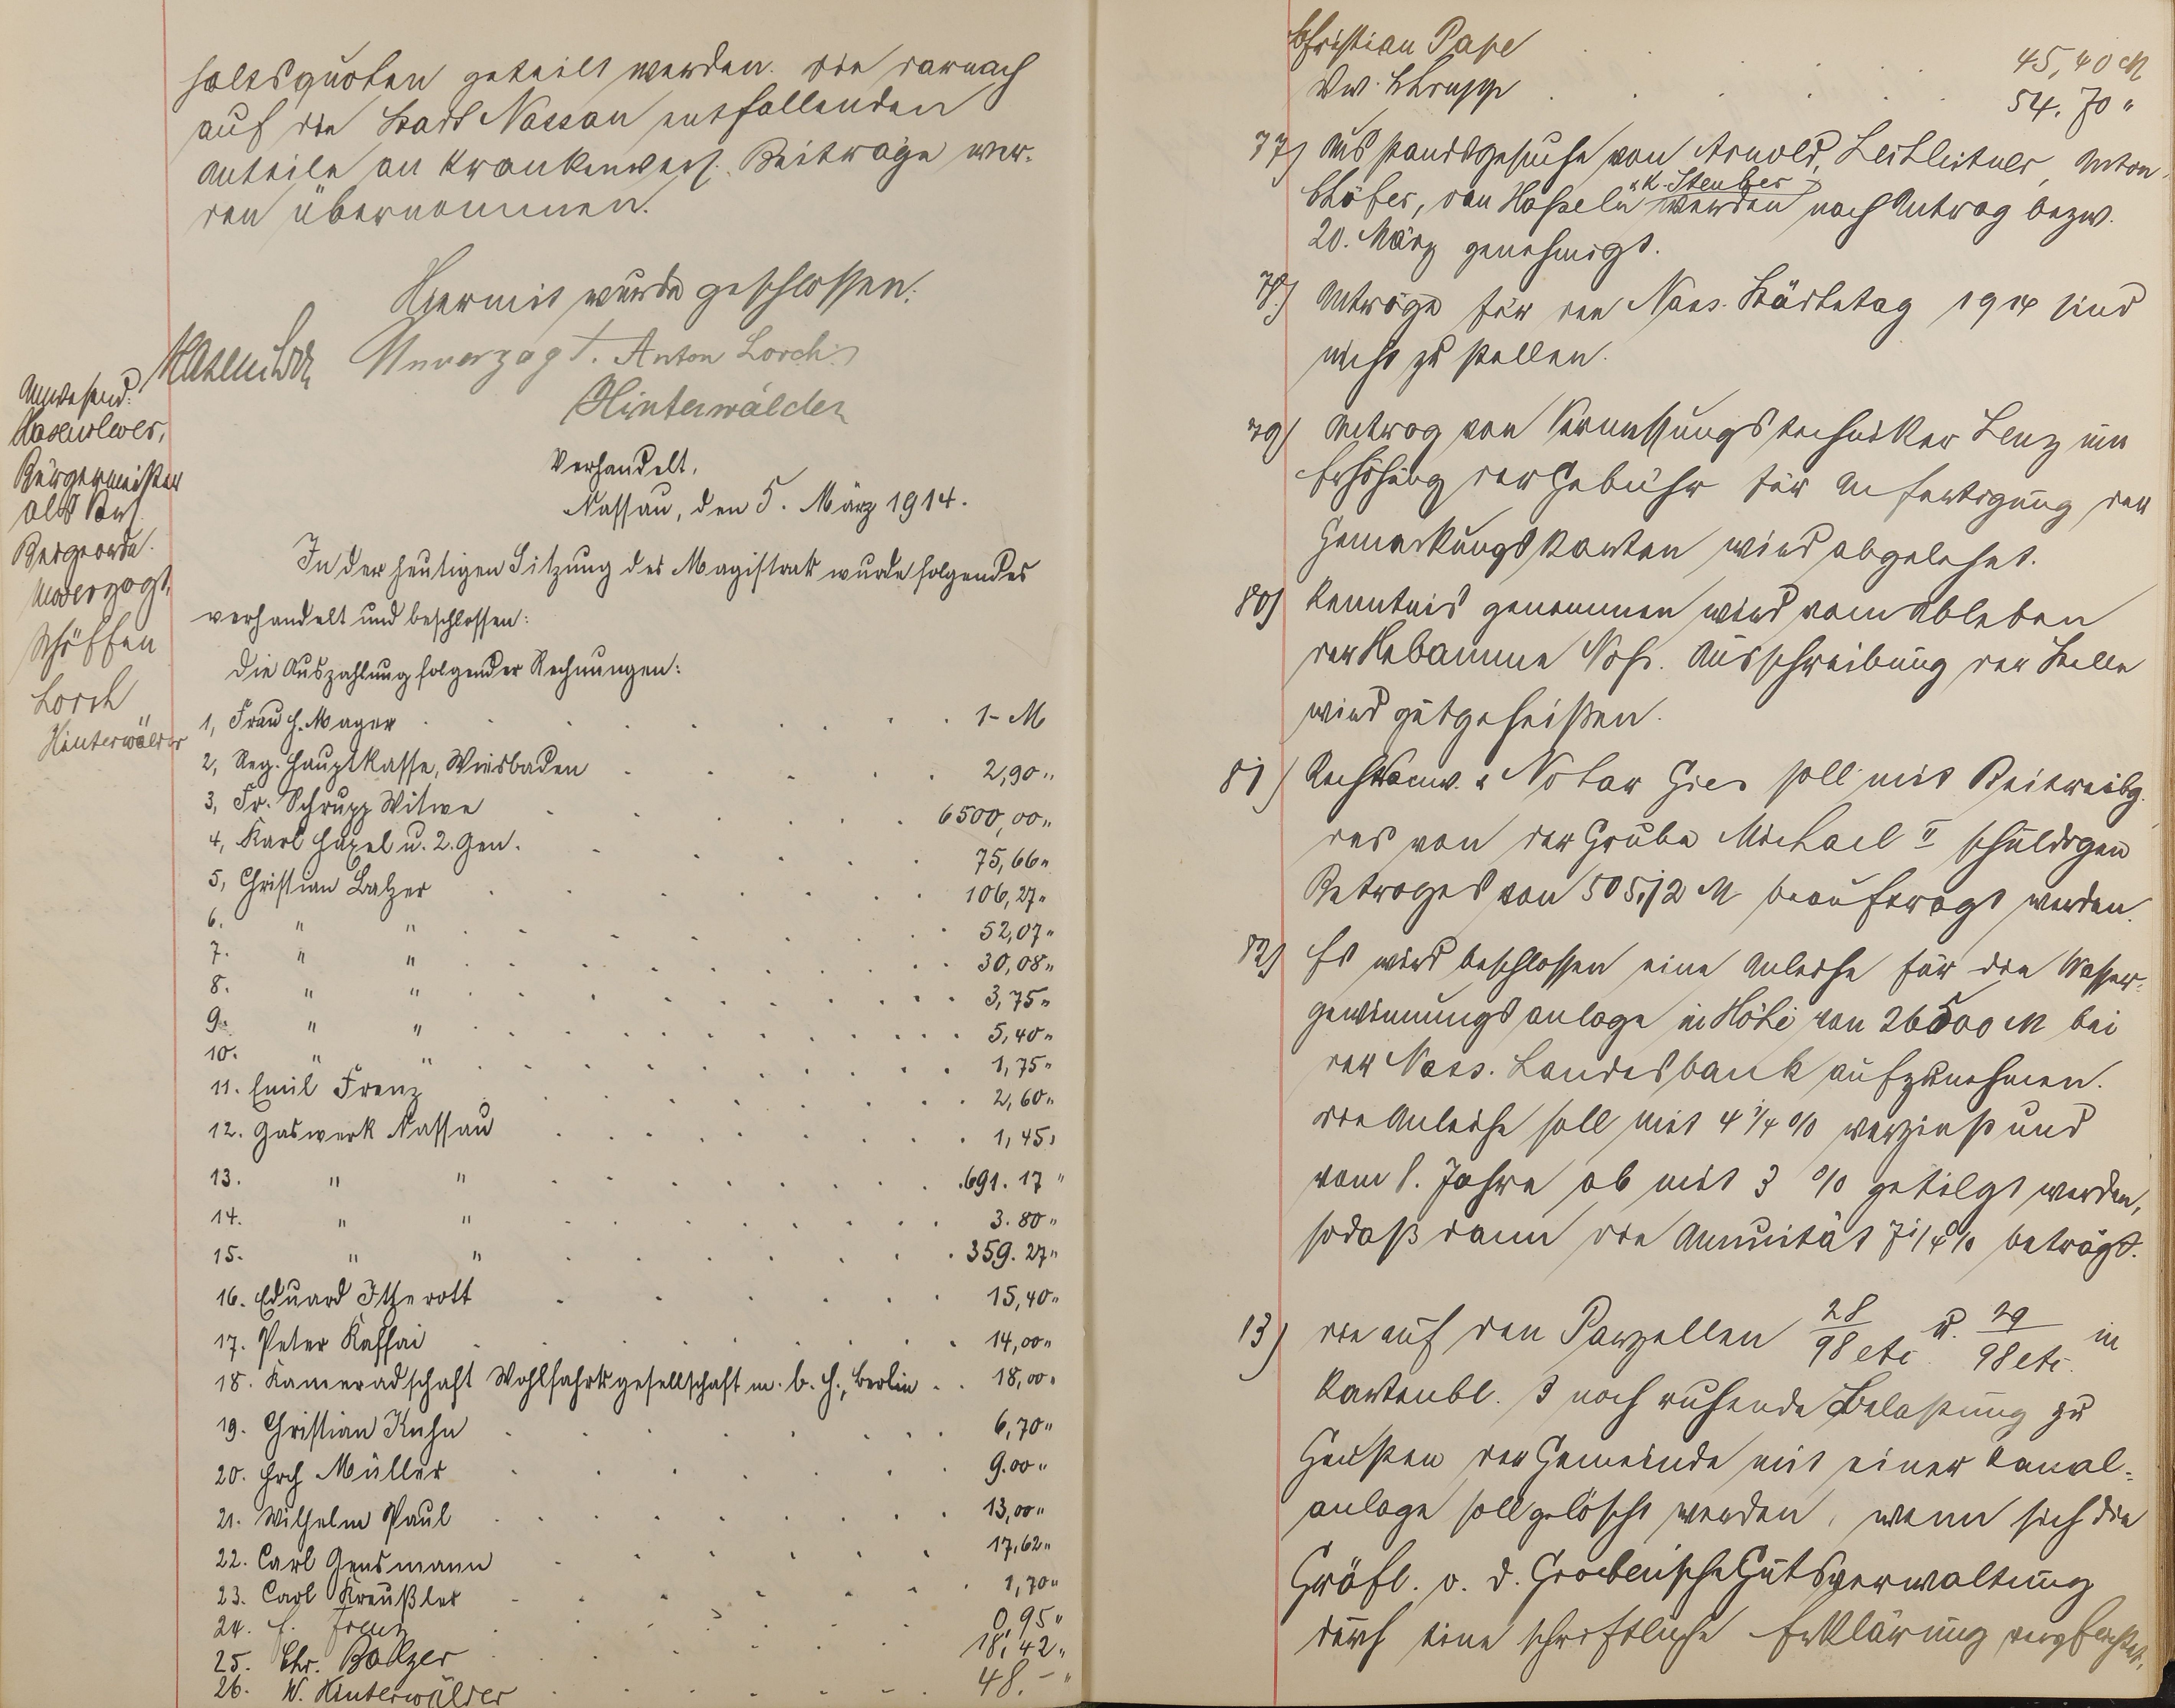 haltsquoten geteilt werden. Die darnach
auf die Stadt Nassau entfallenden
Anteile an Krankenvers. Beiträge wer-
den übernommen.
Hiermit wurde geschlossen.
Hasenclever Unverzagt. Anton Lorch
Hinterwälder
Anwesend:
Hasenclever,
Bürgermeister
als Vors.
Beigeordn.
Unverzagt,
Schöffen
Lorch
Hinterwälder
Verhandelt,
Nassau, den 5. März 1914.
In der heutigen Sitzung des Magistrats wurde folgendes
verhandelt und beschlossen:
Die Auszahlung folgender Rechnungen:
1, Frau H. Mager 1- M
2, Reg. Hauptkasse, Wiesbaden 2,90 "
3, Fr. Schrupp Witwe 6500,00 "
4, Karl Hapel u. 2. Gen. 75,66 "
5, Christian Balzer 106,27 "
6. " " 52,07 "
7. " " 30,08 "
8. " " 3,75 "
9. " " 5,40 "
10. " " 1,75 "
11. Emil Frenz 2,60 "
12. Gaswerk Nassau 1,45 "
13. " " 691.17 "
14. " " 3.80 "
15. " " 359.27 "
16. Eduard Itzerott 15,40 "
17. Peter Kaffai 14,00 "
18. Kameradschaft Wohlfahrtsgesellschaft m. b. H., Berlin 18,00 "
19. Christian Kuhn 6,70 "
20. Hch Müller 9.00 "
21. Wilhelm Paul 13,00 "
22. Carl Gensmann 17,62 "
23. Carl Kreußler 1,70 "
24. E. Frenz 0,95 "
25. Chr. Balzer 18,42 "
26. W. Hinterwälder 48.- "
Christian Pape 45,40 M
Ww. Schrupp 54.70 "
77) Ausstandsgesuche von Arnold, Leikleitner, Anton
Schäfer, von Hasseln u. K. Steuber werden nach Antrag bezw.
20. März genehmigt.
78) Anträge für den Nass. Städtetag 1914 sind
nicht zu stellen.
79) Antrag von Vermessungstechniker Lenz um
Erhöhung der Gebühr für Anfertigung der
Gemarkungskarten wird abgelehnt.
80) Kenntnis genommen wird vom Ableben
der Hebamme Noh. Ausschreibung der Stelle
wird gutgeheißen.
81) Rechtsanw. u. Notar Gies soll mit Beitreibg.
des von der Grube Michael II schuldigen
Betrages von 505,12 M beauftragt werden.
82) Es wird beschlossen eine Anleihe für die Wasser-
gewinnungsanlage in Höhe von 26500 M bei
der Nass. Landesbank aufzunehmen.
Die Anleihe soll mit 4 1/4 % verzinst und
vom 1. Jahre ab mit 3 % getilgt werden,
sodaß dann die Annuität 7 1/4 % beträgt.
13) Die auf den Parzellen 28/98 etc. u. 29/98 etc. in
Kartenbl. 3 noch ruhende Belastung zu
Gunsten der Gemeinde mit einer Kanal-
anlage soll gelöscht werden, wenn sich die
Gräfl. v. d. Groebensche Gutsverwaltung
durch eine schriftliche Erklärung verpflichtet,